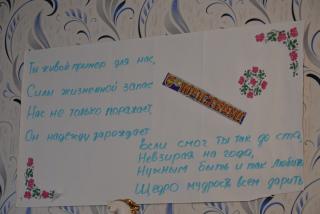 Ты живой пример для нас,
Силы жизненной запас
Нас не только поражает,
Он надежду зарождает
Если смог ты так до ста,
Невзирая на года,
Нужным быть и так любить
Щедро мудрость всем дарить